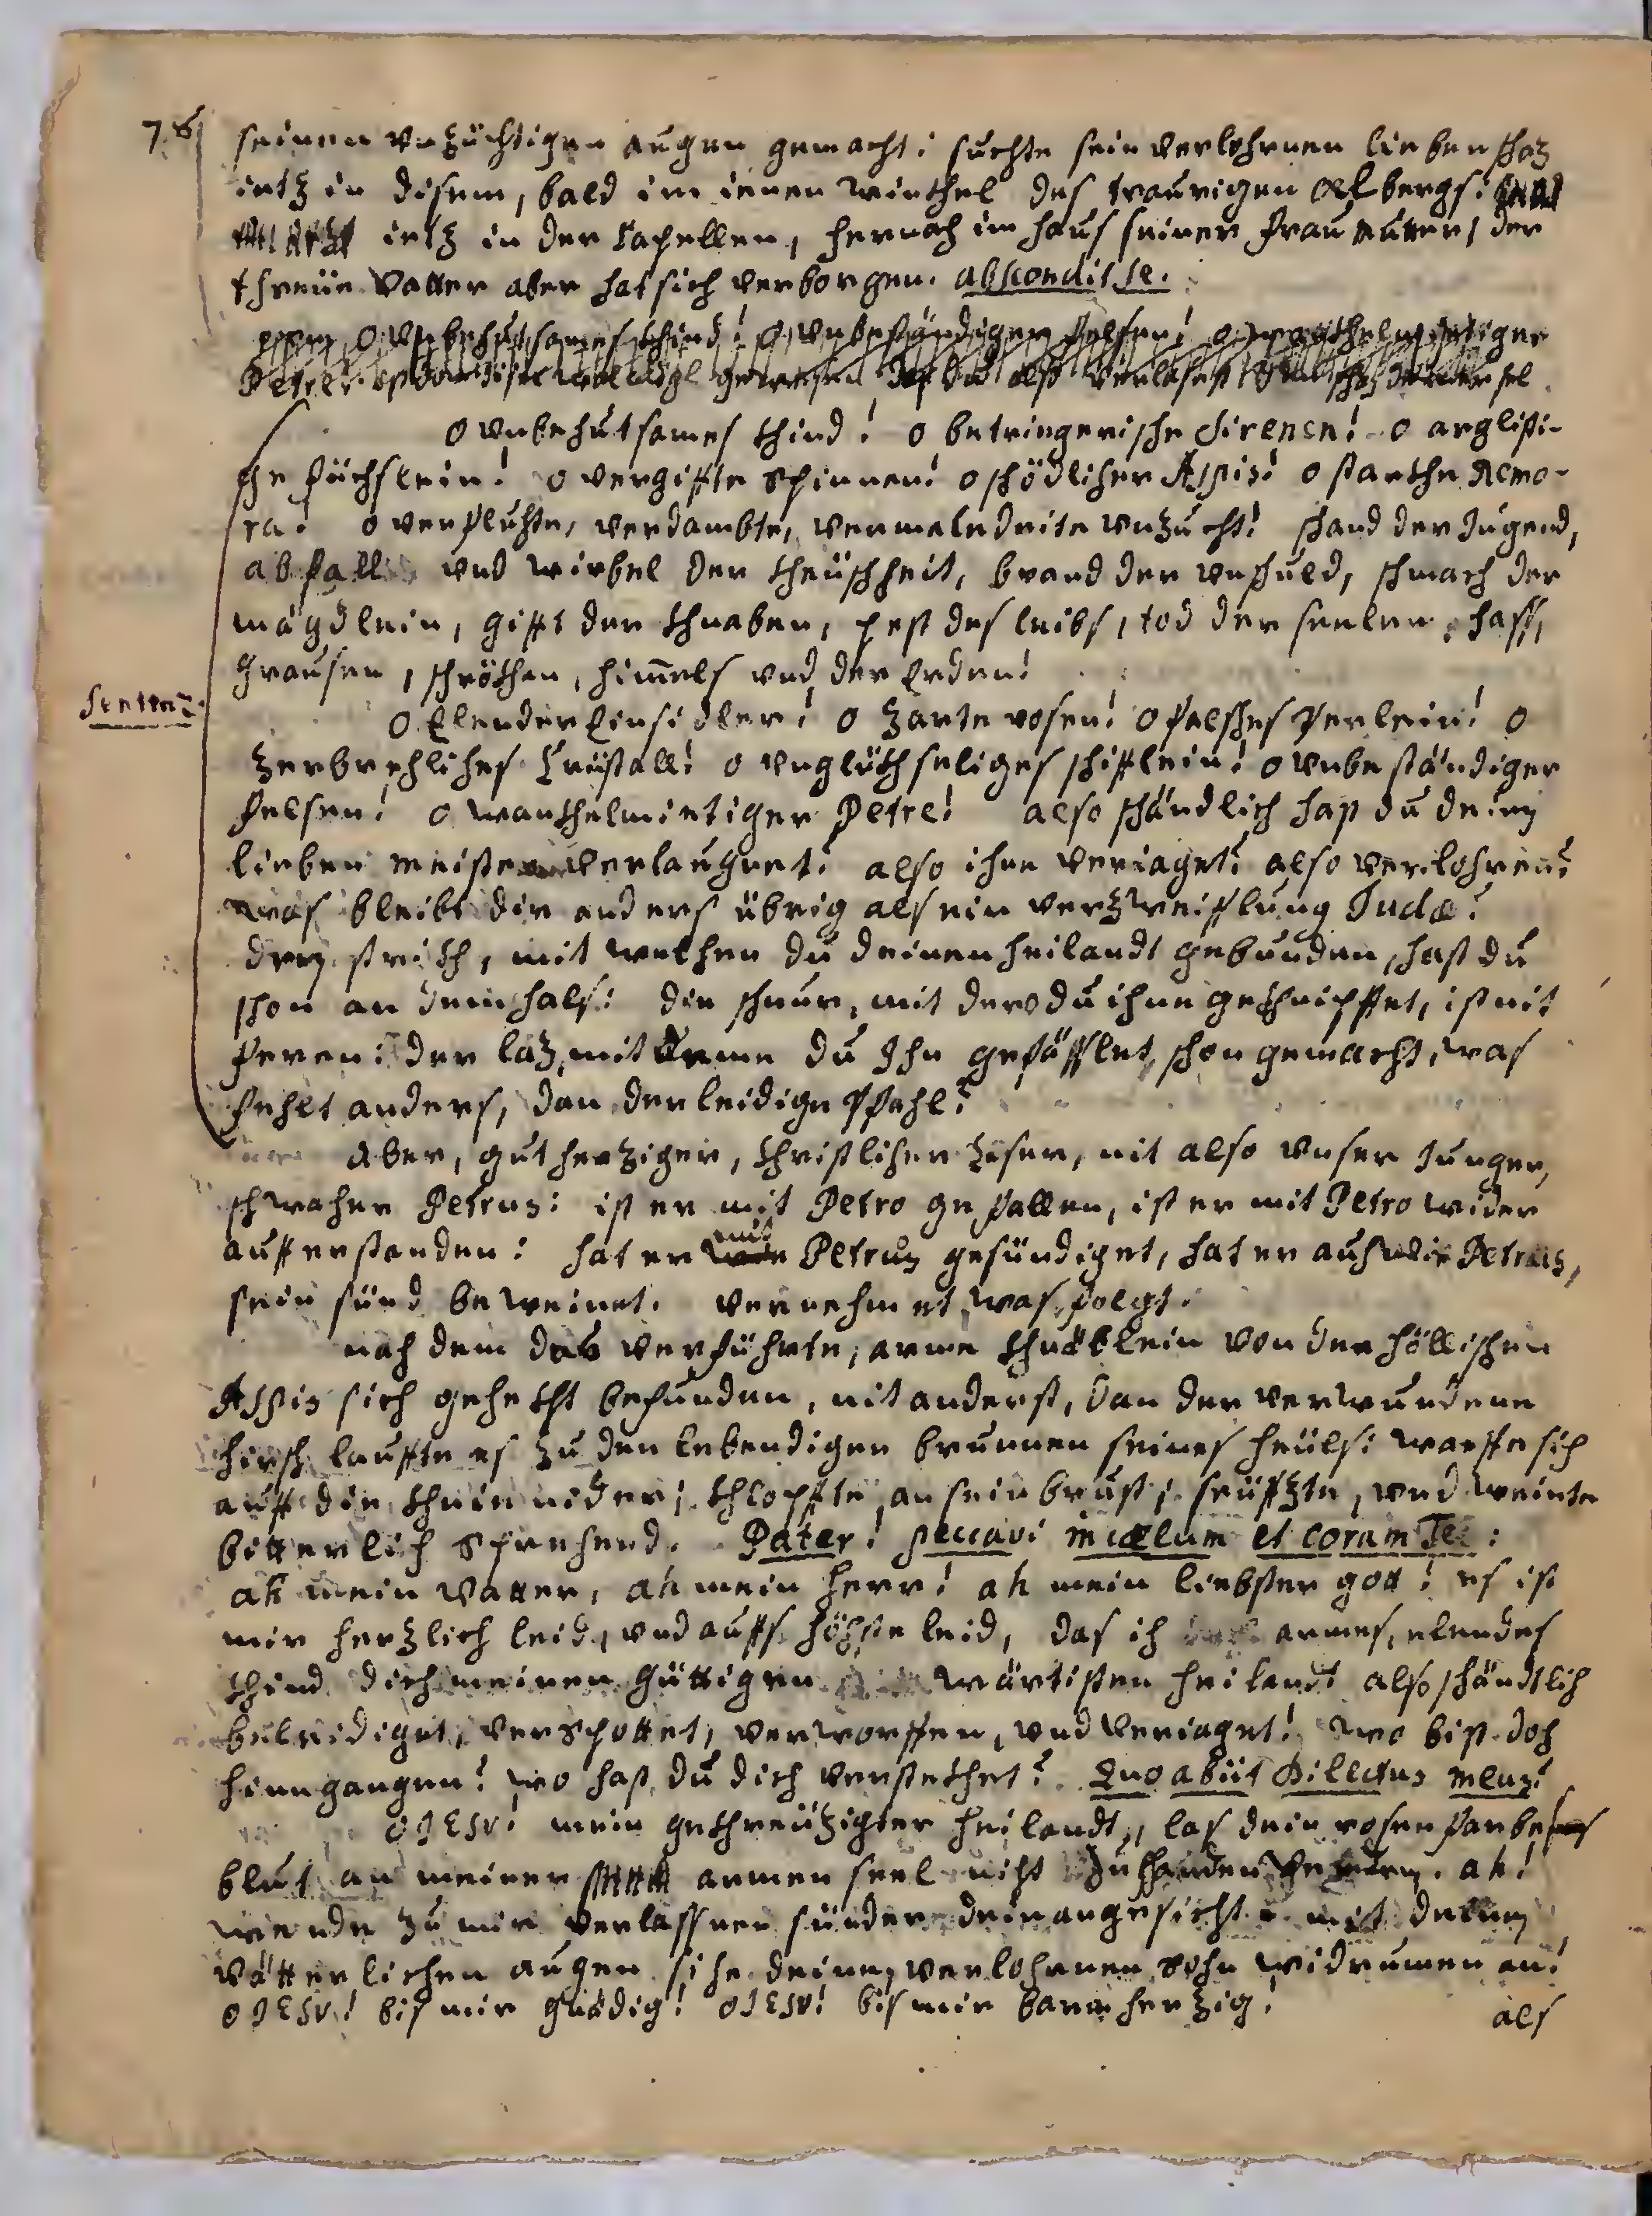 76 seinen vnzüchtigen augen gemacht: suchte sein verlohrnen lieben schaz
ietz in disem, bald im ienen winckel des traurigen oelbergs:
ietz in der Capellen, hernach im haus seiner frau mutter, der
threüe Vatter aber hat sich verborgen. abscondit se.
o vnbehutsames khind! o vnbeständigen felsen! o wanckhelmietiger
Petre!
o vnbehutsames khind! o betriegerische Sirenen! o arglisti-
ge füchslein! o vergiffte Spinnen! o schödlicher Aspis! o starckhe Remo-
ra! o verfluchte, verdambte, vermaledeite vnzucht! schand der Jugend,
abfall vnd wirbel der kheüschheit, brand der vnschuld, schmach der
mägdlein, gifft der khnaben, pest des leibs, tod der seelen, hass,
grausen, schröckhen, himmels vnd der Erden!
Sentenz.
o Elender Einsidler! o zarte rosen! o falsches Perlein! o
zerbrechliches Cristall! o vnglückhseliges schifflein! o vnbeständiger
felsen! o wanckhelmietiger Petre! also schändlich hast du deinen
lieben meister verlaugnet? also ihne veriaget? also verlohren?
was bleibt dir anders übrig als ein verzweifflung Judæ?
den strickh, mit welchen du deinen heilandt gebunden, hast du
schon an deim hals: die schnur, mit der du ihne gekhnipffet, ist nit
feren: der laz, mit deme du Ihn gefässlet, schon gemacht, was
fehlt anders, dan der leidige Pfahl?
Aber, gutherziger, christlicher leser, nit also vnser Junger,
schwacher Petrus: ist er mit Petro gefallen, ist er mit Petro wider
aufferstanden: hat er mit Petrus gesündiget, hat er auch wie Petrus,
sein sünd beweinet. vernehmet was folgt.
nach dem das verführte, arme khnäblein von der höllischen
Aspis sich geheckht befunden, nit anderst, dan der verwundene
hirsch lauffte es zu den lebendigen brunnen seines heüls: warffe sich
auff die khnie nider, khlopffte an sein brust, seüffzte, vnd weinte
bitterlich Sprechend. Pater! peccavi in cælum et coram Te:
ah mein Vatter, ah mein herr! ah mein liebster gott! es ist
mir herzlich leid, vnd auffs höchste leid, das ich armes, elendes
khind dich meinen güttigen wärtisten heilandt also schändtlich
beleidiget, verspottet, verworffen, vnd veriaget! wo bist doch
hinngangen? wo hast du dich versteckhet? Quo abiit dilectus meus?
O JESV! mein gekhreüzigter heilandt, las dein rosenfarbes
blut an meiner armen seel nicht zu schanden werden. ah!
wende zu mir verlassnen sünder dein angesicht: mit deinen
vätterlichen augen sihe deinen verlohrnen sohn widrumen an!
O JESV! bis mir gnädig! O JESV! bis mir barmherzig!
als